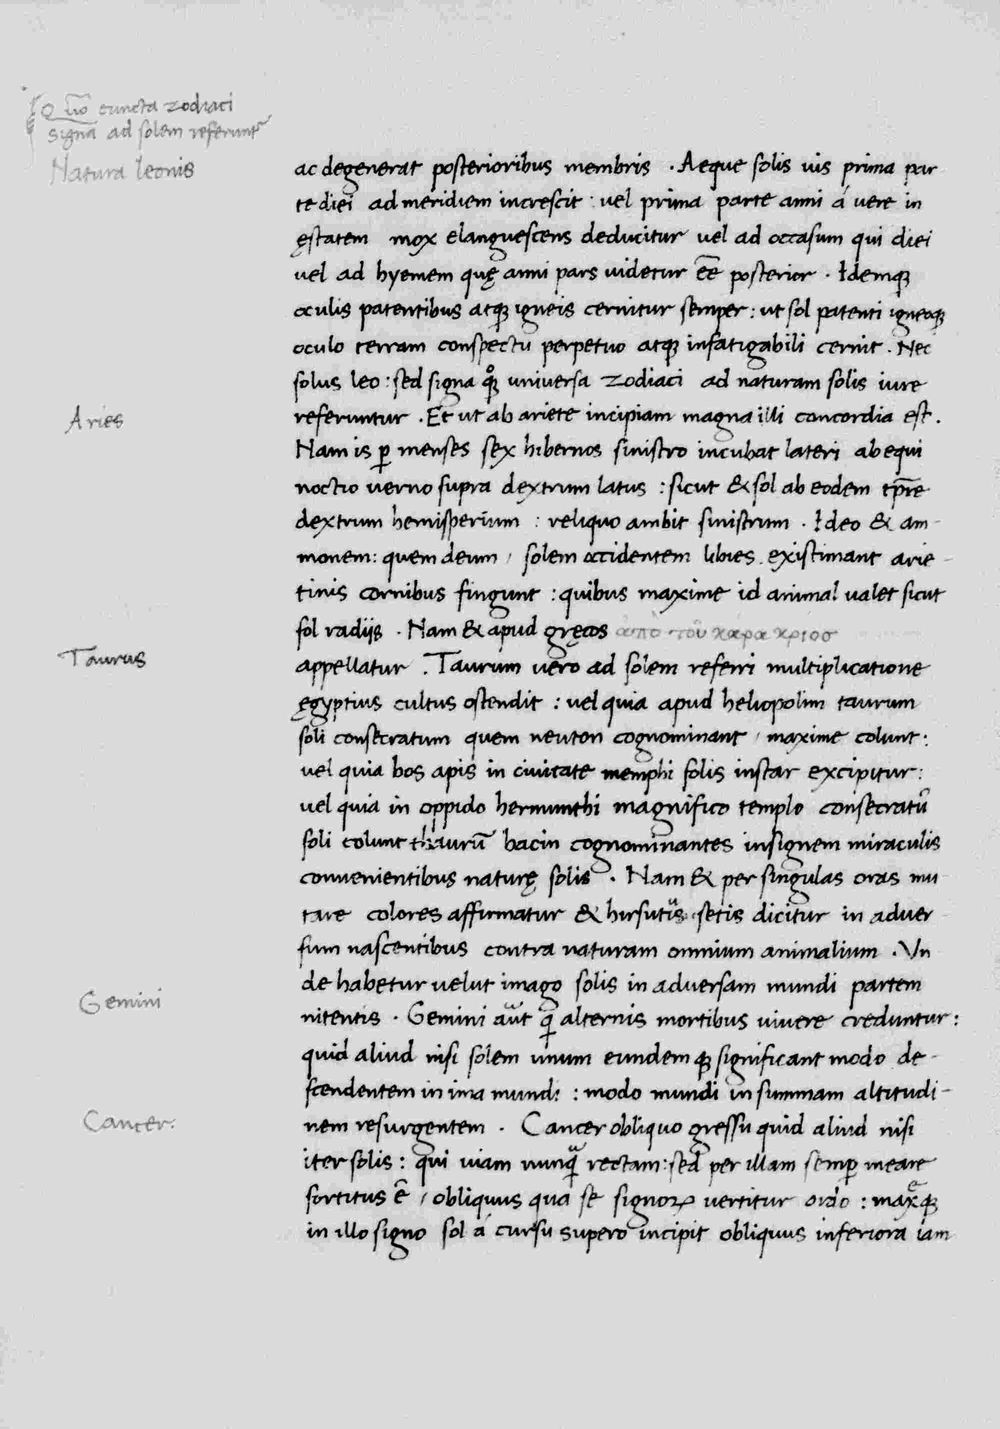 Q uō cuncta zodiaci
signa ad solem referunt᷑
Natura leonis
ac degenerat posterioribus membris . Aeque solis uis prima par
te diei ad meridiem increscit : uel prima parte anni á vere in
ęstatem mox elanguescens deducitur vel ad occasum qui diei
vel ad hyemem quę anni pars uidetur ēē posterior . Idemqꝫ
oculis patentibus atqꝫ igneis cernitur semper : ut sol patenti igneoqꝫ
oculo terram conspectu perpetuo atqꝫ infatigabili cernit . Nec
solus leo : sed signa qͦꝫ universa zodiaci ad naturam solis iure
referuntur . Et ut ab ariete incipiam magna illi concordia est .
Aries
Nam is ꝑ menses sex hibernos sinistro incubat lateri ab equi
noctio verno supra dextrum latus : sicut & sol ab eodem tp̄re
dextrum hemisperium : reliquo ambit sinistrum . Ideo & am-
monem : quem deum / solem occidentem libies existimant arie-
tinis cornibus fingunt : quibus maxime id animal valet sicut
sol radijs . Nam & apud gręcos ἀπὸ τοῦ καρα κριος
appellatur . Taurum vero ad solem referri multiplicatione
Taurus
ęgyptius cultus ostendit : vel quia apud heliopolim taurum
soli consecratum quem neuton cognominant / maxime colunt :
uel quia bos apis in civitate memphi solis instar excipitur :
vel quia in oppido hermunthi magnifico templo consecratū
soli colunt thaurū bacin cognominantes insignem miraculis
convenientibus naturę solis . Nam & per singulas oras mu
tare colores affirmatur & hirsutis setis dicitur in adver
sum nascentibus contra naturam omnium animalium . Vn
de habetur velut imago solis in adversam mundi partem
nitentis . Gemini aūt q̄ alternis mortibus vivere creduntur :
Gemini
quid aliud nisi solem unum eundemqꝫ significant modo de-
scendentem in ima mundi : modo mundi in summam altitudi-
nem resurgentem . Cancer obliquo gressu quid aliud nisi
Cancer :
iter solis : qui viam nunqᷓ rectam : sed per illam semꝑ meare
sortitus ē / obliquus qua se signoꝝ vertitur ordo : maxͤqꝫ
in illo signo sol á cursu supero incipit obliquus inferiora iam